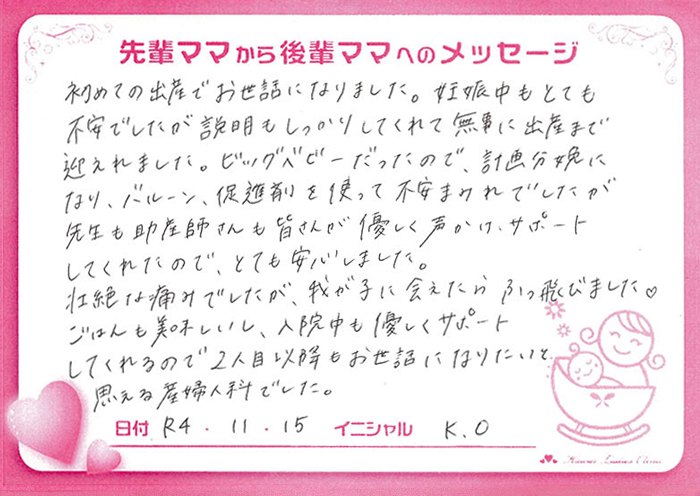 先輩ママから後輩ママへのメッセージ
初めての出産でお世話になりました。妊娠中もとても
不安でしたが説明もしっかりしてくれて無事に出産まで
迎えれました。ビッグベビーだったので、計画分娩に
なり、バルーン、促進剤を使って不安まみれでしたが
先生も助産師さんも皆さんが優しく声かけ、サポート
してくれたので、とても安心しました。
壮絶な痛みでしたが、我が子に会えたらふっ飛びました♡
ごはんも美味しいし、入院中も優しくサポート
してくれるので2人目以降もお世話になりたいと
思える産婦人科でした。
日付 R4 . 11 . 15 イニシャル K.O